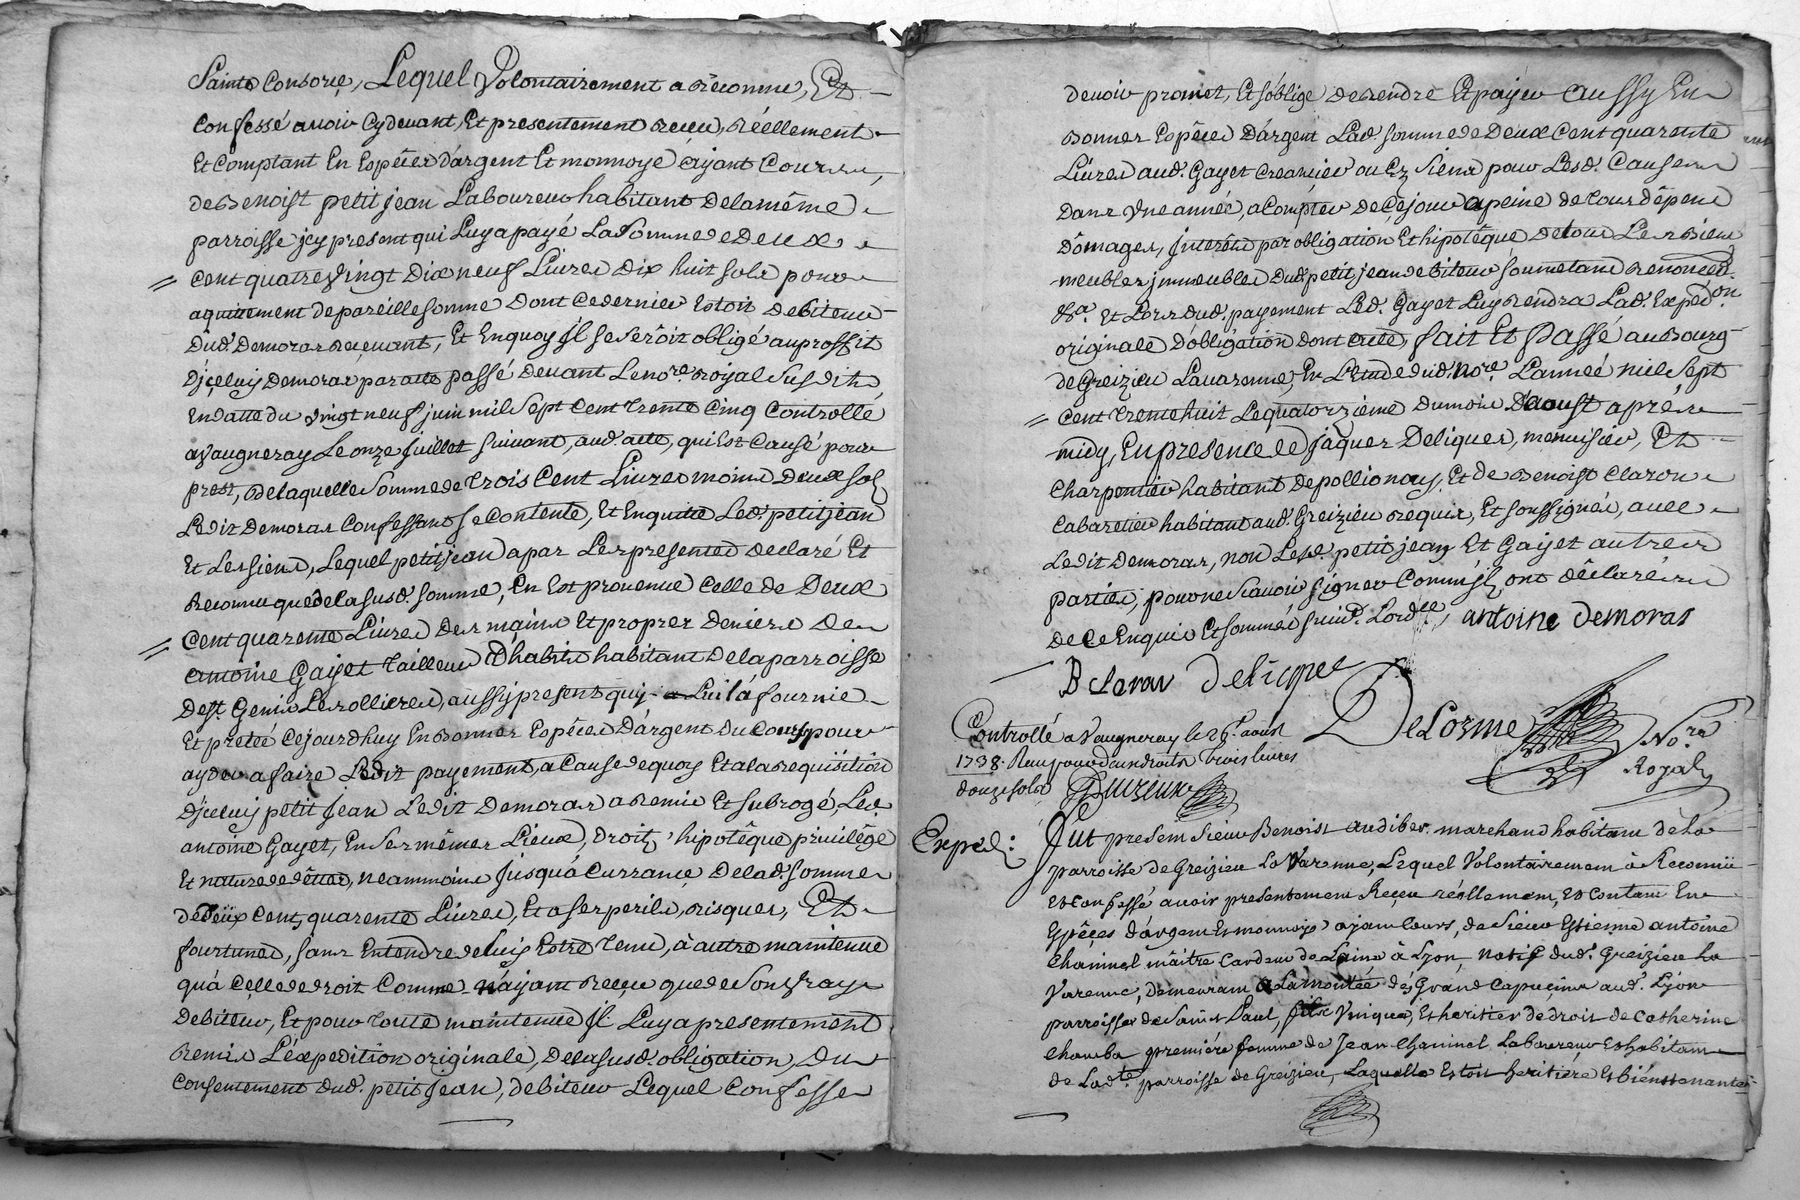 Sainte Consorce, Lequel Volontairement a Reconnu, Et
Confessé avoir Cydevant, Et presentement Receu, Réellement
Et Comptant En Espêces d'argent Et monnoye äyant Cours,
de Benoist petit jean Laboureur habitant De la même
parroisse jcy present qui Luy a payé La Somme de Deux
Cent quatre Vingt Dix neuf Livres Dix huit sols pour
aquittement de pareille somme Dont Ce dernier Estoit Debiteur
Dud. Demoras Reçevant, Et En quoy Il Se Seroit obligé au proffit
D'jçeluy Demoras par acte passé Devant Le no.re Royal Susdit
En datte du vingt neuf juin mil Sept Cent Trente Cinq Controllé
a Vaugneray Le onze Juillet Suivant, aud. acte, qui Est Causé pour
prest, De laquelle Somme de Trois Cent Livres moins Deux Sols
Ledit Demoras Confessant se Contente, Et En quitte Led. petit jean
Et Les Siens, Lequel petit jean a par Les presentes Declaré Et
Reconnu que de la susd. somme, En Est provenue Celle de Deux
Cent quarente Livres Des mains Et propres Deniers De
antoine Gayet Tailleur D'habits habitant De la parroisse
De St. Genis Les ollieres, aussy present qui Lui l'a fournie
Et pretée Cejourdhuy En Bonnes Espêces D'argent Du Cours pour
ayder a faire Ledit payement, a Cause de quoy Et a la Requisition
D'jçeluy petit Jean Ledit Demoras a Remis Et Subrogé, Led.
antoine Gayet, En Ses mêmes Lieux, Droits, hipotêque privilêge
Et nature de dêttes, neammoins Jusqu'á Currance De lad. somme
de Deux Cent quarente Livres, Et a Ses perils, Risques, Et
fourtunes, Sans Entendre de Luy Estre Tenu, à autre maintenue
qu'á Celle de droit Comme n'áyant Reçeu que de Son vray
Debiteur, Et pour toute maintenue Il Luy a presentement
Remis L'éxpedition originale, De la susd. obligation, Du
Consentement Dud. petit Jean, debiteur Lequel Confesse
devoir promet, Et s'oblige de Rendre Et payer aussy En
Bonnes Espêces D'argent Lad. somme de Deux Cent quarente
Livres aud. Gayet Creancier ou Es Siens pour Lesd. Causes
Dans Vne année, a Compter de Cejour a peine de tous dêpens
Dômages, Interêts par obligation Et hipotêque De tous Les Biens
meubles jmmeubles Dud. petit jean debiteur soumetant Renonçant
&a. Et Lors Dud. payement Led. Gayet Luy Rendra Lad. Expedon.
originale D'obligation dont acte, fait Et Passé au Bourg
de Greizieu Lavarenne, En L'Etude dud. nore. L'année mil Sept
Cent Trente huit Le quatorzieme Du mois D'aoust aprés
midy, En presence de Jâques Deliques, menuisier, Et
Charpentier habitant De pollionay, Et de Benoist Claron
Cabaretier habitant aud. Greizieu Requis, Et soussignés, avec
Ledit Demoras, non Lesd. petit jean Et Gayet autres
parties, pour ne Scavoir signer Comm'jls ont dêclaré
de Ce Enquis Et sommés suivt. Lordce., antoine demoras
B Claron Delicque
DeLorme No.re Royal
Controllé a Vaugneray le 26 aoust
1738. Reçu pour deux droits trois livres
douze sols
Exped:
Fut present Sieur Benoist audiber marchand habitant de la
parroisse de Greizieu La Varenne, Lequel Volontairement à Reconnu
Et Confessé avoir presentement Reçeu réellement, Et Contant En
Espêces d'argent Et monnoye ayant Cours, de Sieur Estienne antoine
Chaninel mâitre Cardeur de Laine à Lyon, natif dud. Greizieu La
Varenne, demeurant a La montée des Grand Capuçins aud. Lyon
parroisse de Saint Paul, fils Vnique, Et heritier de droit de Catherine
Chamba premiére femme de Jean Chaninel Laboureur Et habitant
de Ladte. parroisse de Greizieu, Laquelle Estoit heritiére Et biênttenante